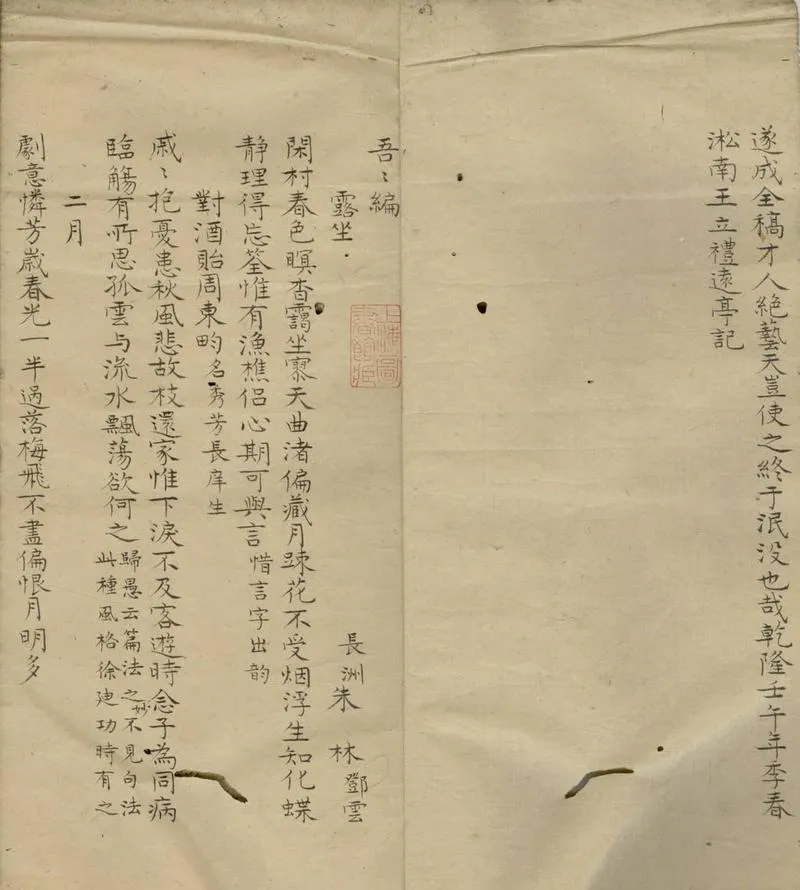 遂成全稿才人絕藝天豈使之終于泯没也哉乾隆壬午年季春
淞南王立禮遠亭記
吾〻編
長洲朱 林鄧雲
露坐
閑村春色暝杳靄坐寥天曲渚偏藏月踈花不受烟浮生知化蝶
静理得忘筌惟有漁樵侣心期可與言惜言字出韵
對酒貽周東畇名秀芳長庠生
戚〻抱憂患秋風悲故枝還家惟下淚不及客遊時念子為同病
臨觴有所思孤雲与流水飄蕩欲何之歸愚云篇法之妙不見句法
此種風格徐廸功時有之
二月
劇意憐芳歲春光一半過落梅飛不盡偏恨月明多
上海圖
書館藏